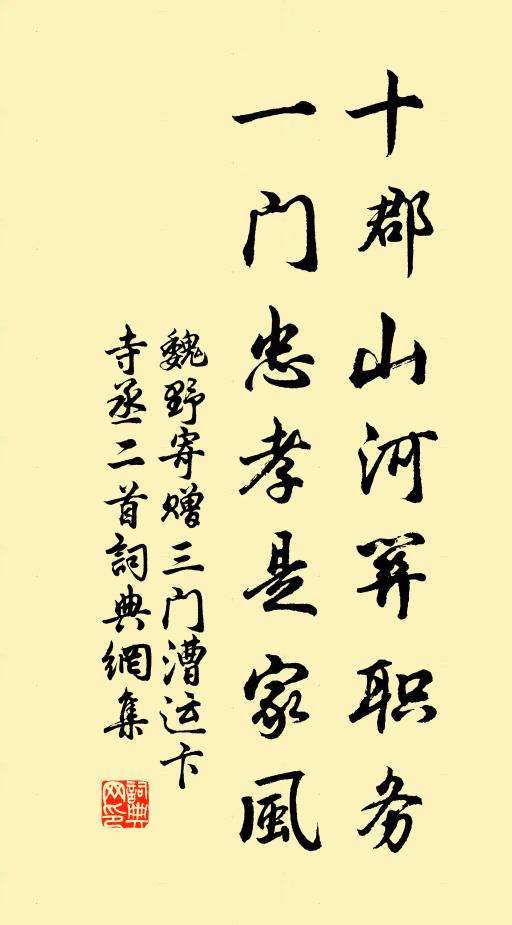 十郡山河關职务
一门忠孝是家風
魏野寄赠三门漕运卞
寺丞二首詞典網集
詞典网印